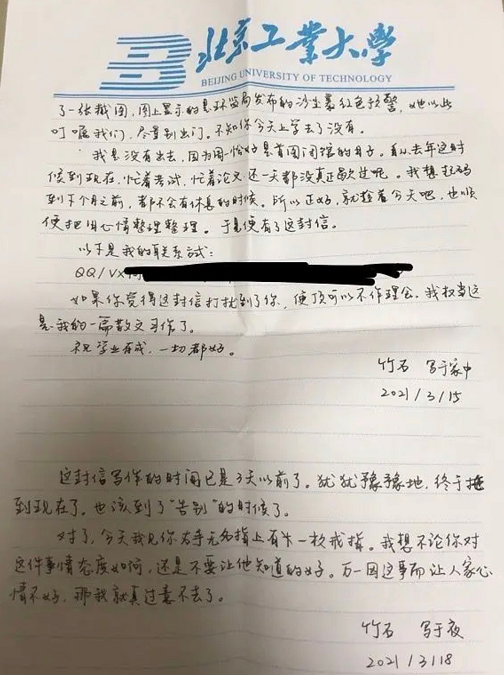 北京工业大学
BEIJING UNIVERSITY OF TECHNOLOGY
了一张截图,图上显示的是环监局发布的沙尘暴红色预警,她以此
叮嘱我们,尽量别出门。不知你今天上学去了没有。
我是没有出去,因为周一恰好是首图闭馆的日子。自从去年这时
候到现在,忙着考试,忙着论文还一天都没真正歇过呢。我想起码
到下个月之前,都不会有休息的时候。所以正好,就趁着今天吧,也顺
便把旧心情整理整理。于是便有了这封信。
以下是我的联系方式:
QQ/VX
如果你觉得这封信打扰到了你,便顶可以不作理会。我权当这
是我的一篇散文习作了。
祝学业有成,一切都好。
竹石 写于家中
2021/3/15
这封信写作的时间已是3天以前了。犹犹豫豫地,终于拖
到现在了。也该到了“告别”的时候了。
对了,今天我见你右手无名指上有一枚戒指。我想不论你对
这件事情态度如何,还是不要让他知道的好。万一因这事而让人家心
情不好,那我就真过意不去了。
竹石 写于夜
2021/3/18